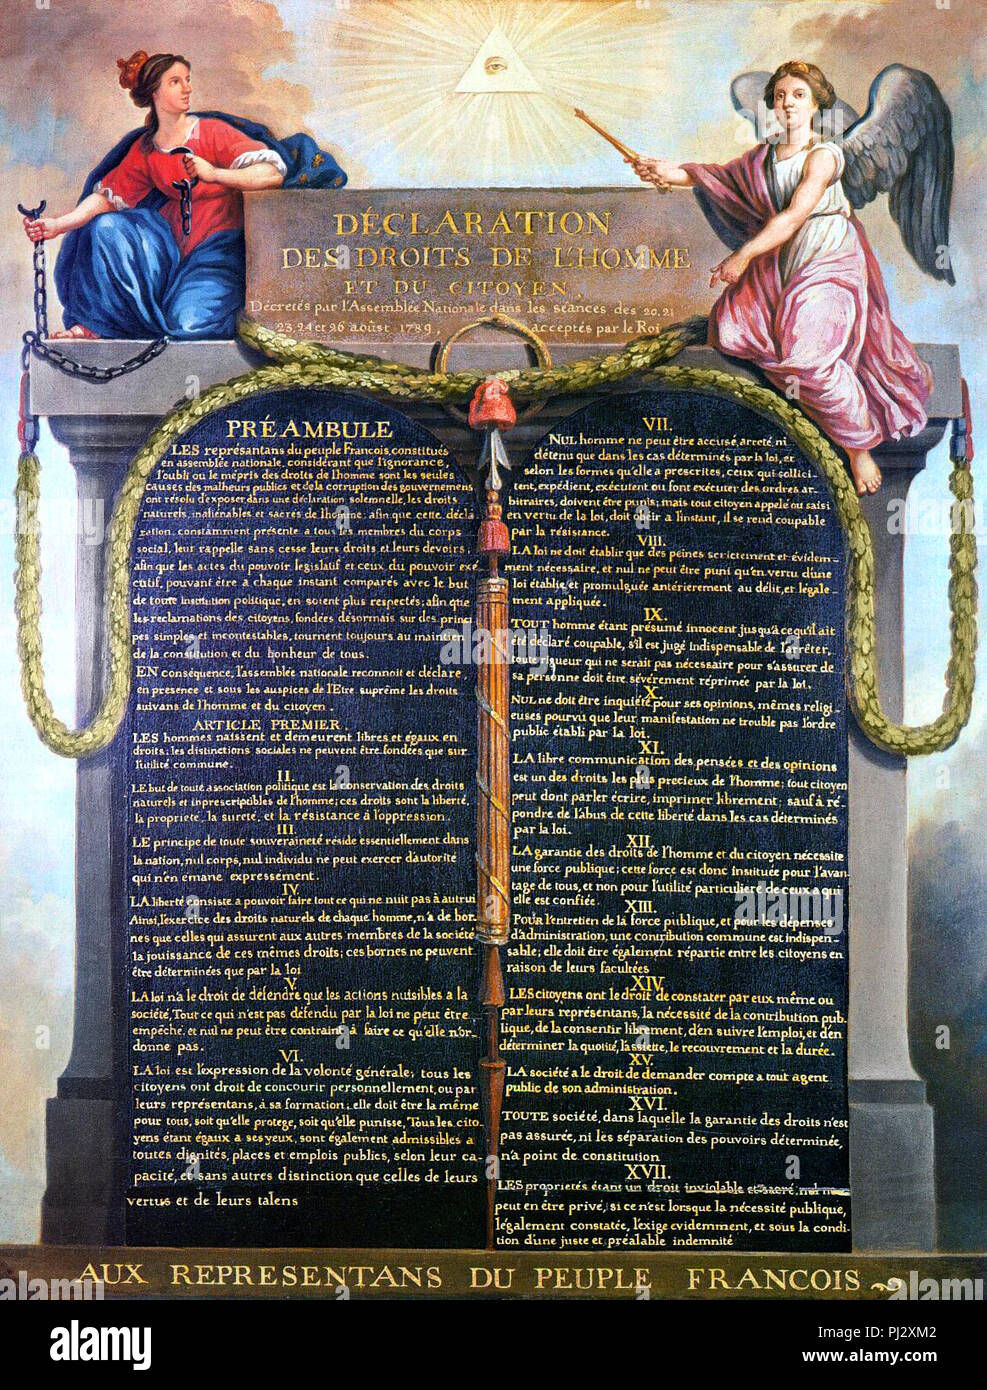 DÉCLARATION
DES DROITS DE L'HOMME
ET DU CITOYEN,
Décretés par l'Assemblée Nationale dans les séances des 20. 21
23. 24 et 26 août 1789, acceptés par le Roi
PRÉAMBULE
LES représantans du peuple Francois, constitués
en assemblée nationale, considérant que l'ignorance,
l'oubli ou le mépris des droits de l'homme sont les seules
causes des malheurs publics et de la corruption des gouvernemens
ont résolu d'exposer, dans une déclaration solemnelle, les droits
naturels, inaliénables et sacrés de l'homme: afin que cette décla
ration, constamment présente à tous les membres du corps
social, leur rappelle sans cesse leurs droits et leurs devoirs,
afin que les actes du pouvoir législatif et ceux du pouvoir exé
cutif, pouvant être à chaque instant comparés avec le but
de toute institution politique, en soient plus respectés; afin que
les reclamations des citoyens, fondées désormais sur des princi
pes simples et incontestables, tournent toujours au maintien
de la constitution et du bonheur de tous.
EN conséquence, l'assemblée nationale reconnoit et déclare
en présence et sous les auspices de l'Etre suprême les droits
suivans de l'homme et du citoyen.
ARTICLE PREMIER.
LES hommes naissent et demeurent libres et égaux en
droits; les distinctions sociales ne peuvent être fondées que sur
l'utilité commune.
II.
LE but de toute association politique est la conservation des droits
naturels et inprescriptibles de l'homme; ces droits sont la liberté,
la propriété, la sureté, et la résistance à l'oppression.
III.
LE principe de toute souveraineté réside essentiellement dans
la nation, nul corps, nul individu ne peut exercer d'autorité
qui n'en émane expressement.
IV.
LA liberté consiste a pouvoir faire tout ce qui ne nuit pas à autrui
Ainsi, l'exercice des droits naturels de chaque homme, n'a de bor-
nes que celles qui assurent aux autres membres de la société
la jouissance de ces mêmes droits; ces bornes ne peuvent
être déterminées que par la loi
V.
LA loi n'a le droit de défendre que les actions nuisibles a la
société, Tout ce qui n'est pas défendu par la loi ne peut être,
empêché, et nul ne peut être contraint à faire ce qu'elle n'or-
donne pas.
VI.
LA loi est l'expression de la volonté générale; tous les
citoyens ont droit de concourir personnellement, ou par
leurs représentans, à sa formation; elle doit être la même
pour tous, soit qu'elle protege, soit qu'elle punisse, Tous les cito-
yens étant égaux a ses yeux, sont également admissibles a
toutes dignités, places et emplois publics, selon leur ca-
pacité, et sans autres distinction que celles de leurs
vertus et de leurs talens
VII.
NUL homme ne peut être accusé, arreté, ni
détenu que dans les cas déterminés par la loi, et
selon les formes qu'elle a prescrites, ceux qui sollici-
tent, expédient, exécutent ou font exécuter des ordres ar-
bitraires, doivent être punis; mais tout citoyen appelé ou saisi
en vertu de la loi, doit obéir a l'instant, il se rend coupable
par la résistance.
VIII.
LA loi ne doit établir que des peines scrictement et évidem-
ment nécessaire, et nul ne peut être puni qu'en vertu d'une
loi établie, et promulguée antérierement au délit, et légale-
ment appliquée.
IX.
TOUT homme étant présumé innocent jusqu'à ce qu'il ait
été déclaré coupable, s'il est jugé indispensable de l'arrêter,
toute rigueur qui ne serait pas nécessaire pour s'assurer de
sa personne doit être sévèrement réprimée par la loi.
X.
NUL ne doit être inquiété pour ses opinions, mêmes religi-
euses pourvu que leur manifestation ne trouble pas l'ordre
public établi par la loi.
XI.
LA libre communication des pensées et des opinions
est un des droits les plus precieux de l'homme; tout citoyen
peut dont parler écrire, imprimer librement; sauf à ré-
pondre de l'abus de cette liberté dans les cas déterminés
par la loi.
XII.
LA garantie des droits de l'homme et du citoyen nécessite
une force publique; cette force est donc instituée pour l'avan-
tage de tous, et non pour l'utilité particuliere de ceux a qui
elle est confiée.
XIII.
Pour l'entretien de la force publique, et pour les dépenses
d'administration, une contribution commune est indispen-
sable; elle doit être également répartie entre les citoyens en
raison de leurs facultées
XIV.
LES citoyens ont le droit de constater par eux même ou
par leurs représentans, la nécessité de la contribution pub-
lique, de la consentir librement, d'en suivre l'emploi, et d'en
déterminer la quotité, l'assiette, le recouvrement et la durée.
XV.
LA société a le droit de demander compte a tout agent
public de son administration.
XVI.
TOUTE société, dans laquelle la garantie des droits n'est
pas assurée, ni les séparation des pouvoirs déterminée,
n'a point de constitution
XVII.
LES propriétés étant un droit inviolable et sacré, nul ne
peut en être privé, si ce n'est lorsque la nécessité publique,
légalement constatée, l'exige evidemment, et sous la condi
tion d'une juste et préalable indemnité
AUX REPRESENTANS DU PEUPLE FRANCOIS
alamy
Image ID: PJ2XM2
www.alamy.com